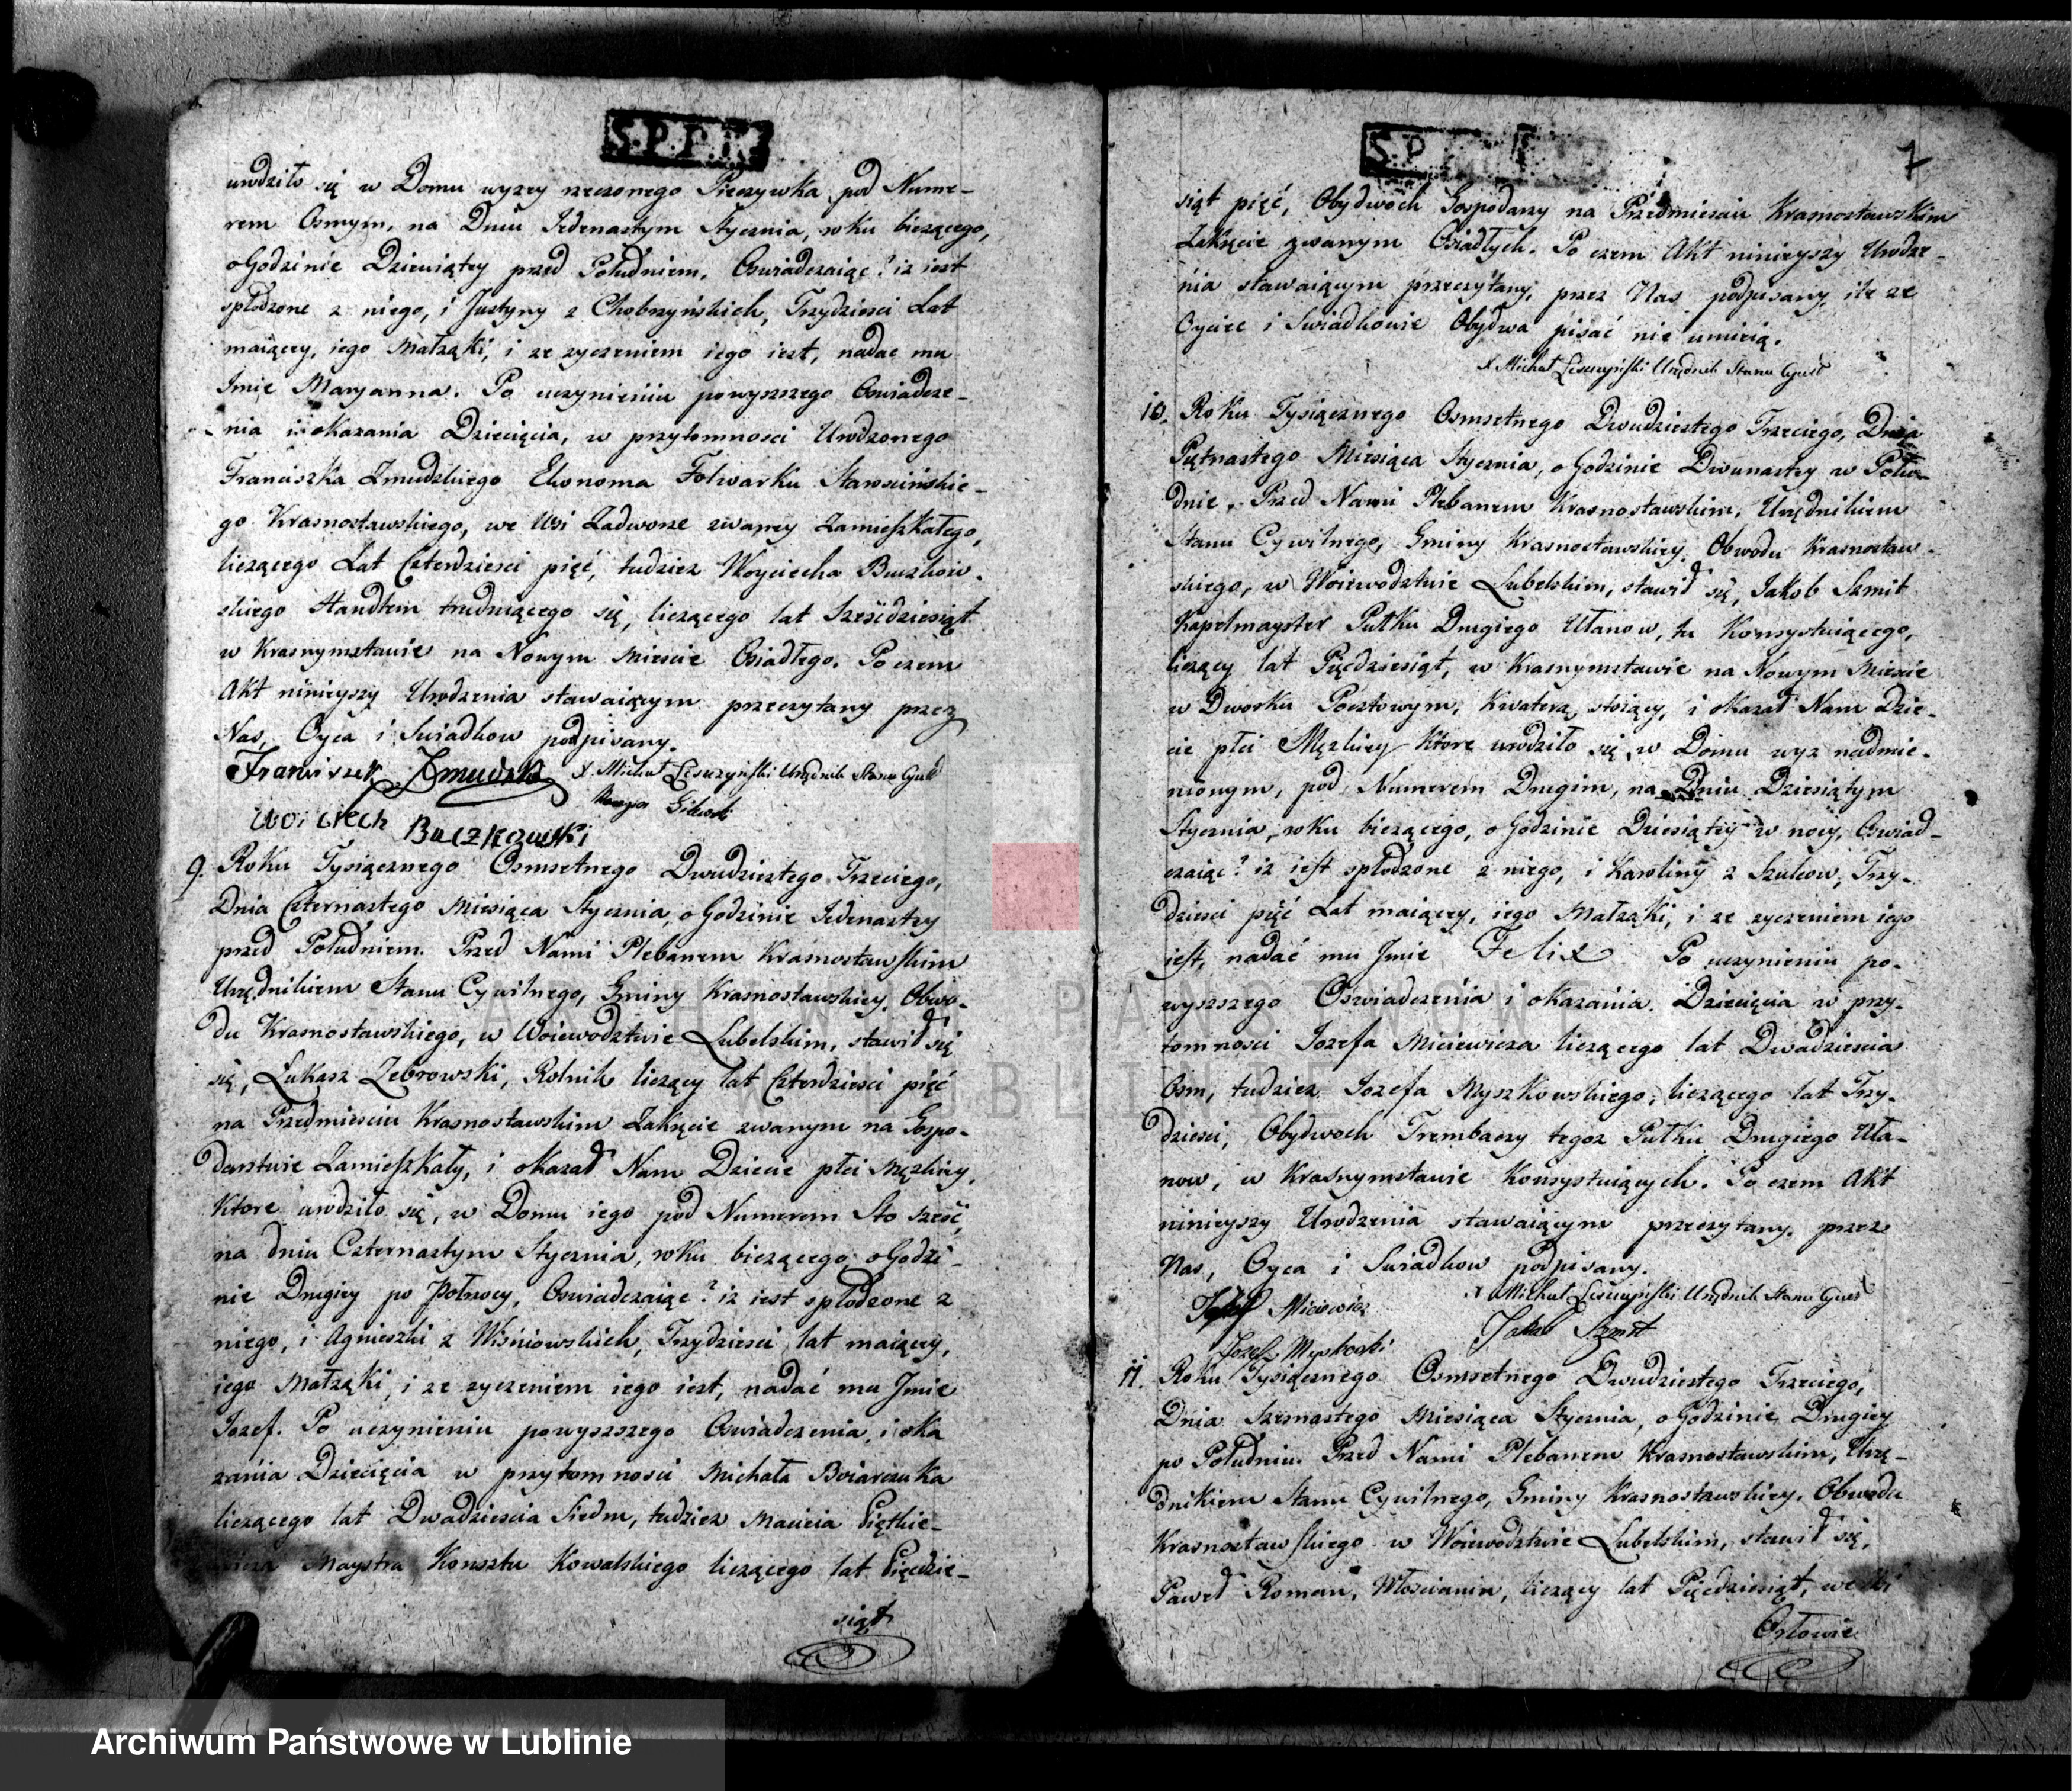 S.P.P.K
urodziło się w Domu wyzey rzeczonego Pieczywka pod Nume-
rem Osmym, na Dniu Jedenastym Stycznia, roku bieżącego,
o Godzinie Dziewiątey przed Południem. Oswiadczaiąc? iz iest
spłodzone z niego, i Justyny z Chobrzyńskich, Trzydziesci Lat
maiącey, iego Małząki, i ze zyczeniem iego iest, nadac mu
Imie Maryanna. Po uczynieniu powyszszego Oswiadcze-
nia i okazania Dziecięcia, w przytomnosci Urodzonego
Franciszka Zmudzkiego Ekonoma Folwarku Starościńskie-
go Krasnostawskiego, we Wsi Zadworze zwaney Zamieszkałego,
liczącego Lat Czterdziesci pięć, tudziez Woyciecha Buczkow-
skiego Handlem trudniącego się, liczącego lat Sześćdziesiąt
w Krasnymstawie na Nowym Miescie Osiadłego. Poczem
Akt ninieyszy Urodzenia stawaiącym przeczytany przez
Nas, Oyca i Swiadkow podpisany.
Franciszek Zmudzki X Michał Leszczyński Urzędnik Stanu Cywil
Woiciech Buczkowski
9. Roku Tysiącznego Osmsetnego Dwudziestego Trzeciego,
Dnia Czternastego Miesiąca Stycznia, o Godzinie Jedenastey
przed Południem. Przed Nami Plebanem Krasnostawskim
Urzędnikiem Stanu Cywilnego, Gminy Krasnostawskiey, Obwo-
du Krasnostawskiego, w Woiewodztwie Lubelskim, stawił się
się, Łukasz Zebrowski, Rolnik liczący lat Czterdziesci pięć
na Przedmiesciu Krasnostawskim Zakręcie zwanym na Gospo-
darstwie Zamieszkały, i okazał Nam Dziecie płci Męzkiey,
Ktore urodziło się, w Domu iego pod Numerem Sto sześć,
na dniu Czternastym Stycznia, roku bieżącego, o Godzi-
nie Drugiey po Północy, Oswiadczaiąc? iz iest spłodzone z
niego, i Agnieszki z Wiśniowskich, Trzydziesci lat maiącey,
iego Małząki, i ze zyczeniem iego iest, nadać mu Imie
Jozef. Po uczynieniu powyszszego Oswiadczenia, i oka
zania Dziecięcia w przytomnosci Michała Boiarczuka
liczącego lat Dwadziescia Siedm, tudziez Macieia Piętkie-
wicza Maystra Konsztu Kowalskiego liczącego lat Pięcdzie-
siąt
S.P
7
siąt pięć, Obydwoch Gospodarzy na Przedmiesciu Krasnostawskim
Zakręcie zwanym Osiadłych. Po czem Akt ninieyszy Urodze-
nia stawaiącym przeczytany, przez Nas podpisany ile ze
Oyciec i Swiadkowie Obydwa pisać nie umieią.
X Michał Leszczyński Urzędnik Stanu Cywil
10. Roku Tysiącznego Osmsetnego Dwudziestego Trzeciego, Dnia
Piętnastego Miesiąca Stycznia, o Godzinie Dwunastey w Połu-
dnie, Przed Nami Plebanem Krasnostawskim, Urzędnikiem
Stanu Cywilnego, Gminy Krasnostawskiey, Obwodu Krasnostaw-
skiego, w Woiewodztwie Lubelskim, stawił się, Jakob Szmit
Kapelmayster Pułku Drugiego Ułanow, tu Konsystuiącego,
liczący lat Pięćdziesiąt, w Krasnymstawie na Nowym Miescie
w Dworku Pocztowym, Kwaterą stoiący, i okazał Nam Dzie-
cie płci Męzkiey Ktore urodziło się, w Domu wyz nadmie-
nionym, pod Numerem Drugim, na Dniu Dziesiątym
Stycznia, roku bieżącego, o Godzinie Dziesiątey w nocy, Oswiad-
czaiąc? iz iest spłodzone z niego, i Karoliny z Szulcow, Trzy-
dziesci pięć Lat maiącey, iego Małząki, i ze zyczeniem iego
iest, nadać mu Imie Felix Po uczynieniu po-
wyszszego Oswiadczenia i okazania Dziecięcia w przy-
tomnosci Jozefa Miciewicza liczącego lat Dwadziescia
Osm, tudziez Jozefa Myszkowskiego, liczącego lat Trzy-
dziesci, Obydwoch Trembaczy tegoz Pułku Drugiego Uła-
now, w Krasnymstawie Konsystuiących. Po czem Akt
ninieyszy Urodzenia stawaiącym przeczytany, przez
Nas, Oyca i Swiadkow podpisany.
Jozef Miciewicz X Michał Leszczyński Urzędnik Stanu Cywil
Jozef Myskoski Jakob Szmit
11. Roku Tysiącznego Osmsetnego Dwudziestego Trzeciego,
Dnia Szesnastego Miesiąca Stycznia, o Godzinie Drugiey
po Południu. Przed Nami Plebanem Krasnostawskim, Urzę-
dnikiem Stanu Cywilnego, Gminy Krasnostawskiey, Obwodu
Krasnostawskiego w Woiewodztwie Lubelskim, stawił się,
Paweł Roman, Włoscianin, liczący lat Pięćdziesiąt, we Wsi
Orłowie
ARCHIWUM PAŃSTWOWE
W LUBLINIE
Archiwum Państwowe w Lublinie